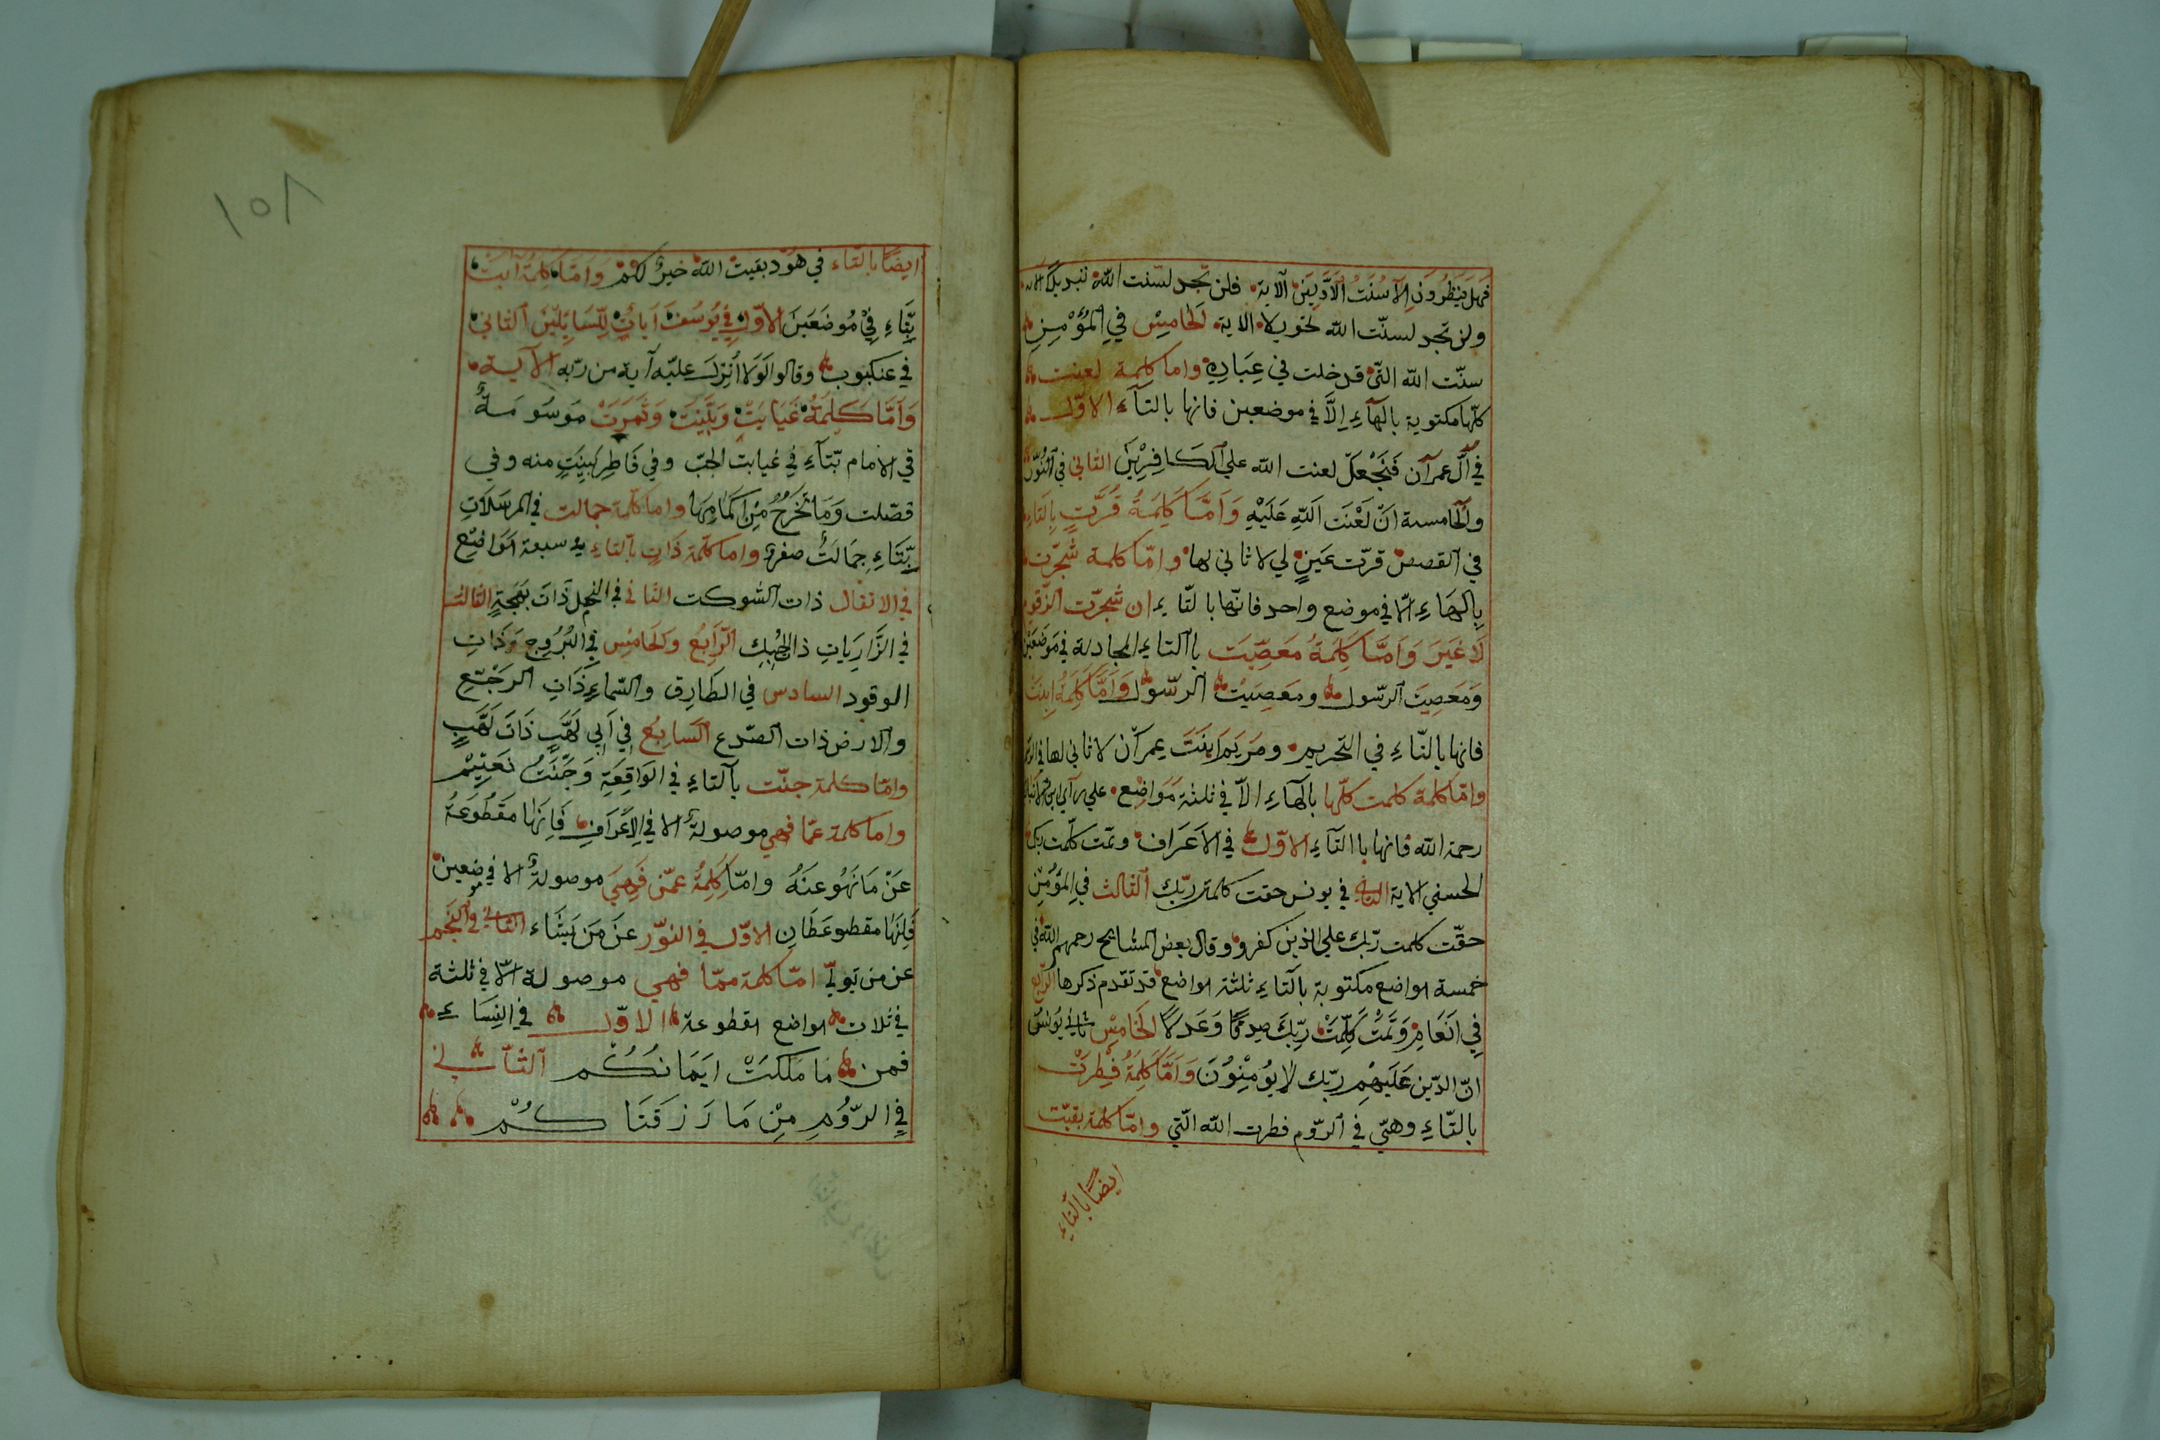 فهل ينظرون الا سنت الاولين الآية فلن تجد لسنت الله تبديلا الاية
ولن تجد لسنت الله تحويلا الاية الخامس في المؤمن
سنت الله التى قد خلت في عباده واما كلمة لعنت
كلها مكتوبة بالهاء الا في موضعين فانها بالتاء الاول
في آل عمرآن فنجعل لعنت الله على الكافرين الثاني في النور
والخامسة ان لعنت الله عليه واما كلمة قرت بالتاء
في القصص قرت عين لي لا ثاني لها واما كلمة شجرت
بالهاء الا في موضع واحد فانها بالتاء ان شجرت الزقوم
لا غير واما كلمة معصيت باالتاء المجادلة في موضعين
ومعصيت الرسول ومعصيت الرسول واما كلمة ابنت
فانها بالتاء في التحريم ومريم ابنت عمرآن لا ثاني لها
واما كلمة كلمت كلها بالهاء الا في ثلثة مواضع على رآى ابن
رحمة الله فانها باالتاء الاول في الاعراف وتمت كلمت ربك
الحسني الاية الثاني في يونس حقت كلمة ربك الثالث في المؤمن
حقت كلمت ربك على الذين كفرو وقال بعض المشايح رحمهم الله في
خمسة مواضع مكتوبة بالتاء ثلثة مواضع قد تقدم ذكرها الرابع
في انعام وتمت كلمت ربك صدقا وعدلا الخامس ثاني يونس
ان الذين عليهم ربك لا يومنون واما كلمة فطرت
بالتاء وهي في الروم فطرت الله التي واما كلمة بقيت
ايضا بالتاء
١٥٨
ايضا بالتاء في هود بقيت الله خير لكم واما كلمة آيت
بتاء في موضعين الاول في يوسف آيات للسايلين الثاني
في عنكبوب وقالو الولا انزل عليه آية من ربه الآية
واما كلمة غيابت وبينت وثمرت موسومة
في الامام بتاء في غيابت الجب وفي فاطر بينت منه وفي
فصلت وما تخرج من اكمامها واما كلمة جمالت في المرسلات
بتاء جمالت صفر واما كلمة ذات بالتاء في سبعة مواضع
في الانفال ذات الشوكت الثاني في النمل ذات بهجة الثالث
في الزاريات ذالحبك الرابع والخامس في البروج وذات
الوقود السادس في الطارق والسماء ذات الرجع
والارض ذات الصدع السابع في ابي لهب ذات لهب
واما كلمة جنت بالتاء في الواقعة وجنت نعيم
واما كلمة عما فهي موصولة الا في الاعراف فانها مقطوعة
عن ما نهو عنه واما كلمة عمن فهي موصولة الا في موضعين
فانها مقطوعطان الاول في النور عن من يشاء الثاني في والنجم
عن من تولي اما كلمة مما فهي موصولة الا في ثلثة
في ثلاث مواضع مقطوعة الاول في النساء
فمن ما ملكت ايمانكم الثاني
في الروم من ما رزقناكم